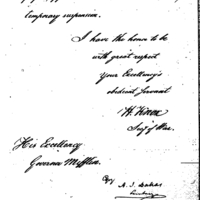 temporary suspension.
I have the honor to be
with great respect
Your Excellency's
obedient Servant
H. Knox
Secy of War.
His Excellency
Governor Mifflin.